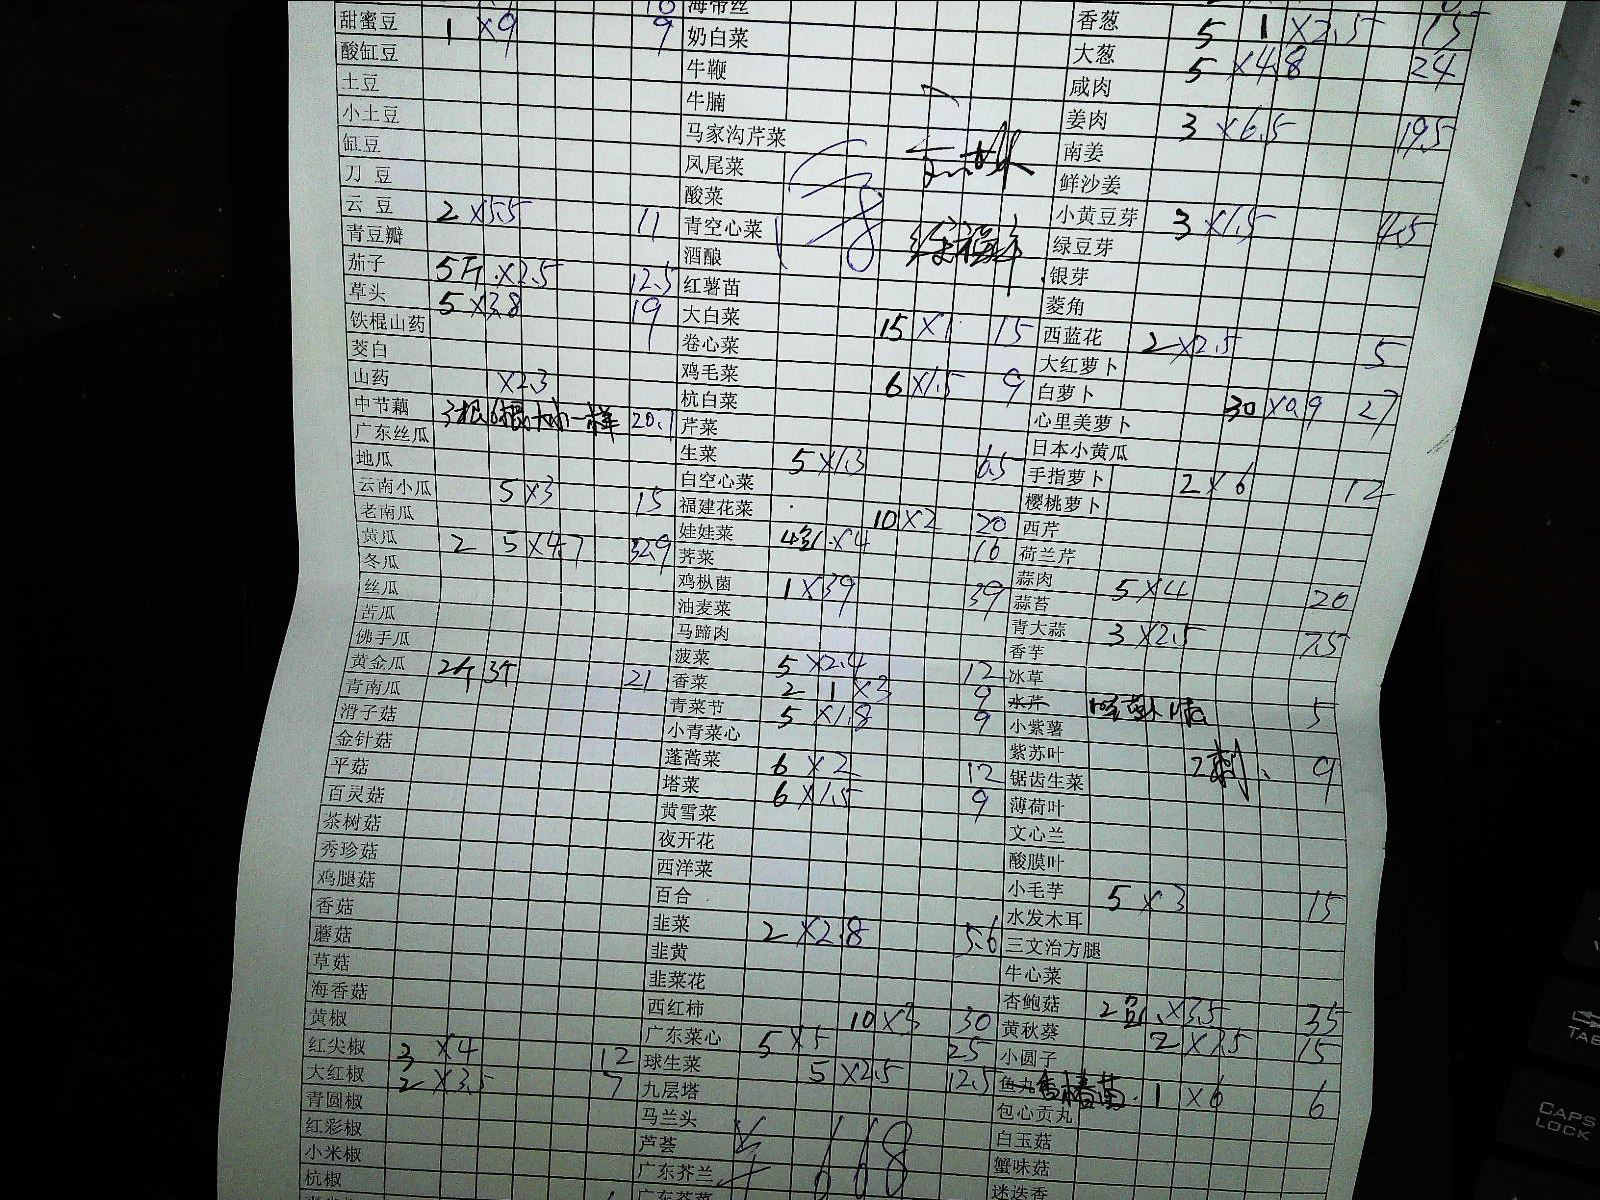 甜蜜豆 1 ×9 9
酸缸豆
土豆
小土豆
缸豆
刀 豆
云 豆 2 ×5.5 11
青豆瓣
茄子 5斤 ×2.5 12.5
草头 5 ×3.8 19
铁棍山药
茭白
山药 ×2.3
中节藕 3根 大小一样 20.7
广东丝瓜
地瓜
云南小瓜 5 ×3 15
老南瓜
黄瓜 2 5 ×4.7 32.9
冬瓜
丝瓜
苦瓜
佛手瓜
黄金瓜 2个 3斤 21
青南瓜
滑子菇
金针菇
平菇
百灵菇
茶树菇
秀珍菇
鸡腿菇
香菇
蘑菇
草菇
海香菇
黄椒
红尖椒 3 ×4 12
大红椒 2 ×3.5 7
青圆椒
红彩椒
小米椒
杭椒
海带丝
奶白菜
牛鞭
牛腩
马家沟芹菜
凤尾菜
酸菜
青空心菜
酒酿
红薯苗
大白菜 15 ×1 15
卷心菜
鸡毛菜 6 ×1.5 9
杭白菜
芹菜
生菜 5 ×1.3 6.5
白空心菜
福建花菜 10 ×2 20
娃娃菜 4包 ×4 16
荠菜
鸡枞菌 1 ×39 39
油麦菜
马蹄肉
菠菜 5 ×2.4 12
香菜 2 1 ×3 9
青菜节 5 ×1.8 9
小青菜心
蓬蒿菜 6 ×2 12
塔菜 6 ×1.5 9
黄雪菜
夜开花
西洋菜
百合
韭菜 2 ×2.8 5.6
韭黄
韭菜花
西红柿 10 ×3 30
广东菜心 5 ×5 25
球生菜 5 ×2.5 12.5
九层塔
马兰头
芦荟
广东芥兰
668
香葱 5 1 ×2.5 15
大葱 5 ×4.8 24
咸肉
姜肉 3 ×6.5 19.5
南姜
鲜沙姜
小黄豆芽 3 ×1.5 4.5
绿豆芽
银芽
菱角
西蓝花 2 ×2.5 5
大红萝卜
白萝卜 30 ×0.9 27
心里美萝卜
日本小黄瓜
手指萝卜 2 ×6 12
樱桃萝卜
西芹
荷兰芹
蒜肉 5 ×4 20
蒜苔
青大蒜 3 ×2.5 7.5
香芋
冰草
水芹 5
小紫薯
紫苏叶 9
锯齿生菜
薄荷叶
文心兰
酸膜叶
小毛芋 5 ×3 15
水发木耳
三文治方腿
牛心菜
杏鲍菇 2盒 ×3.5 35
黄秋葵 2 ×7.5 15
小圆子
鱼丸 香椿苗 1 ×6 6
包心贡丸
白玉菇
蟹味菇
迷迭香
TAB
CAPS
LOCK